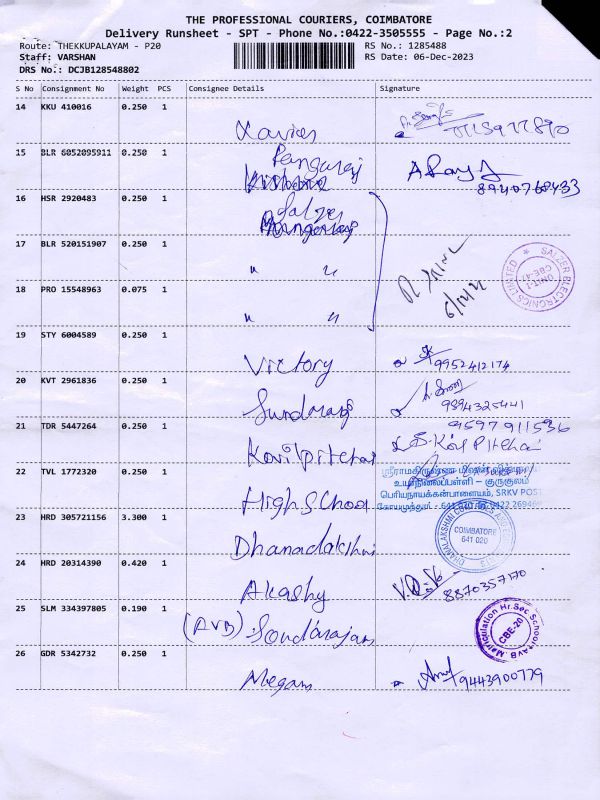 THE PROFESSIONAL COURIERS, COIMBATORE
Delivery Runsheet - SPT - Phone No.:0422-3505555 - Page No.:2
Route: THEKKUPALAYAM - P20 RS No.: 1285488
Staff: VARSHAN RS Date: 06-Dec-2023
DRS No.: DCJB128548802
S No Consignment No Weight PCS Consignee Details Signature
14 KKU 410016 0.250 1
Xavier
15 BLR 6052095911 0.250 1
Rangaraj
8940768433
16 HSR 2920483 0.250 1
Salzer
17 BLR 520151907 0.250 1
" "
SALZER ELECTRONICS LIMITED
UNIT-1
CBE-47
18 PRO 15548963 0.075 1
" "
19 STY 6004589 0.250 1
Victory 9952412174
20 KVT 2961836 0.250 1
Sundaraj 9894325441
21 TDR 5447264 0.250 1
9597911536
Kovilpitchai
22 TVL 1772320 0.250 1
உயர்நிலைப்பள்ளி – குருகுலம்
பெரியநாயக்கன்பாளையம், SRKV POST
High School
23 HRD 305721156 3.300 1
COIMBATORE
641 020
Dhanalakshmi
24 HRD 20314390 0.420 1
Akashy 8870357170
25 SLM 334397805 0.190 1
(AVB) Soundarajan
Matriculation Hr.Sec School
AVB
CBE-20
26 GDR 5342732 0.250 1
Megam 9443900779